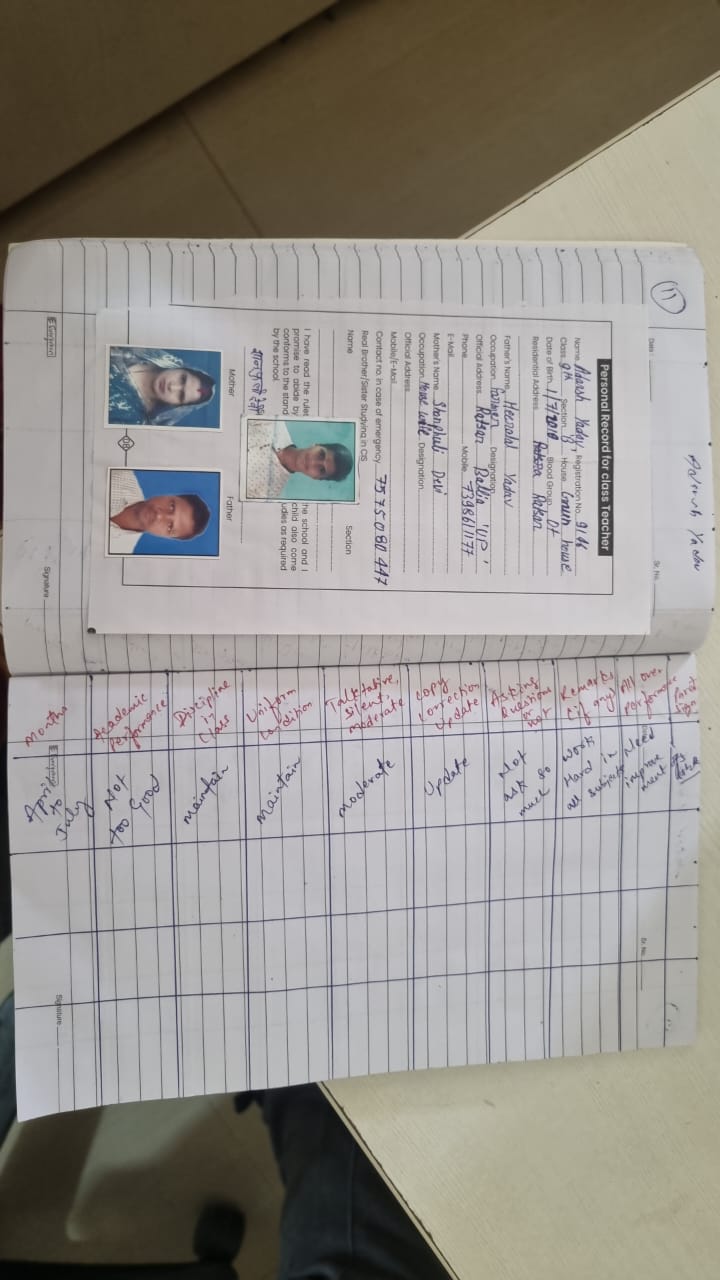 (11)
Adarsh Yadav
Date :
Sr. No.
Personal Record for class Teacher
Name Adarsh Yadav, Registration No. 9146
Class 9th Section House Crown house
Date of Birth 1/7/2010 Blood Group O+
Residential Address Ratsar
Father's Name Heeralal Yadav
Occupation Farmer Designation
Official Address Ratsar Ballia 'UP'
Phone Mobile 7398611177
E-Mail
Mother's Name Devi
Occupation House wife Designation
Official Address
Mobile/E-Mail
Contact no. in case of emergency
Real Brother/Sister Studying in CIS
Name Section
I have read the rules the school and I
promise to abide by child also come
conforms to the stand udies as required
by the school.
देवी
Mother Father
08
Everyday
Signature
Sr. No.
Parent
sign
All over
performance
Need
improve
ment
Remarks
(if any)
Work
Hard in
all subjects
Asking
Questions
or
not
Not
ask
much so
copy
correction
update
update
Talktative,
silent,
moderate
moderate
Uniform
condition
Maintain
Discipline
in
class
maintain
Academic
performance
Not
too Good
Months
April
to
July
Signature